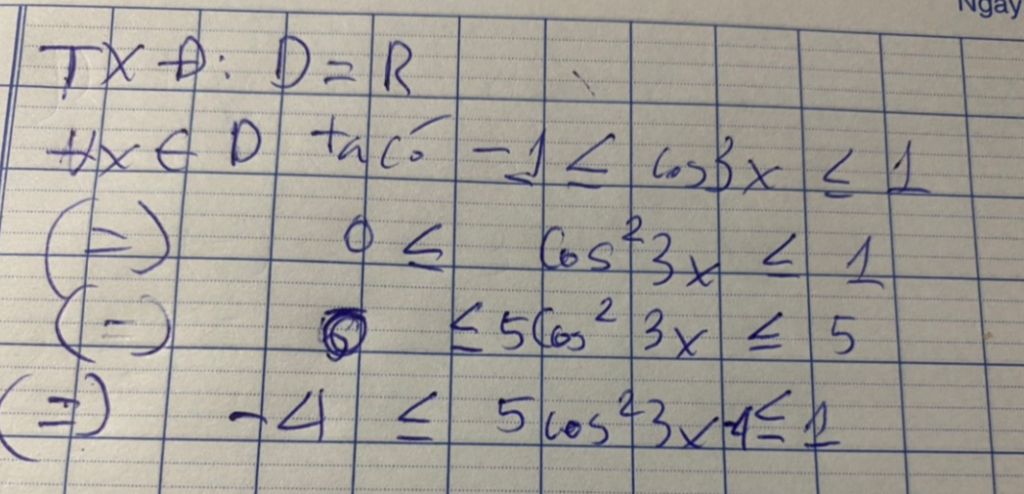 Ngày
TXĐ: D = R
∀x ∈ D ta có -1 ≤ cos3x ≤ 1
(=) 0 ≤ cos²3x ≤ 1
(=) 0 ≤ 5cos²3x ≤ 5
(=) -4 ≤ 5cos²3x-4 ≤ 1